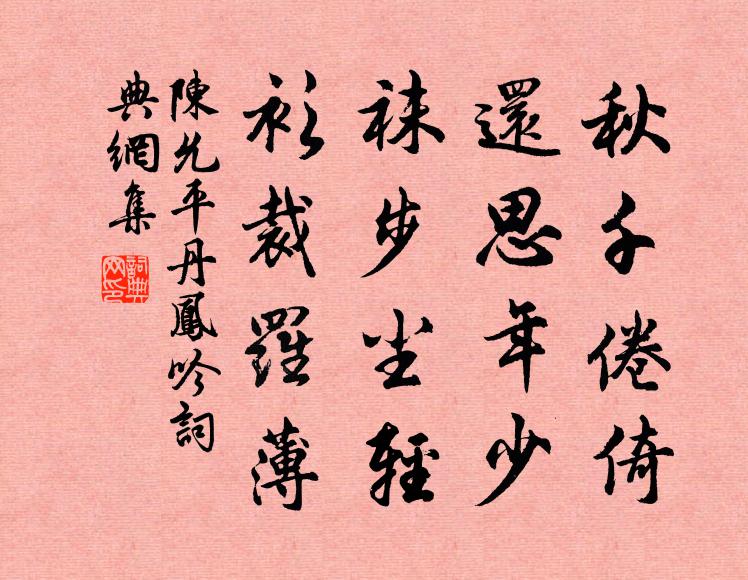 秋千倦倚
還思年少
袜步尘輕
衫裁羅薄
陳允平丹鳳吟詞
典網集
詞典網印